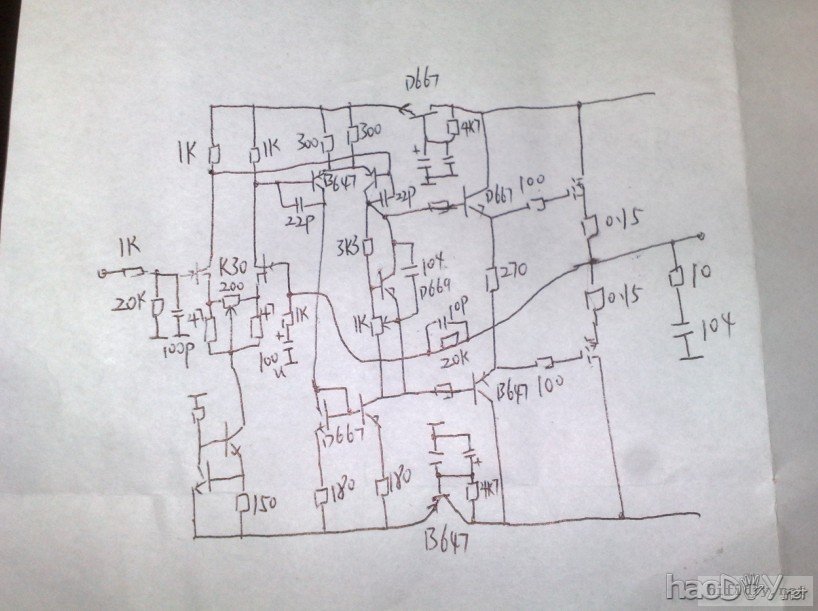 D667
1K
1K
300
300
4K7
+
B647
22P
22P
D667
100
0.15
1K
K30
3K3
104
270
20K
200
D669
10
0.15
47
47
1K
10P
1K
100P
+
100
u
20K
104
100
B647
D667
+
180
180
4K7
150
B647
haoDIY.net